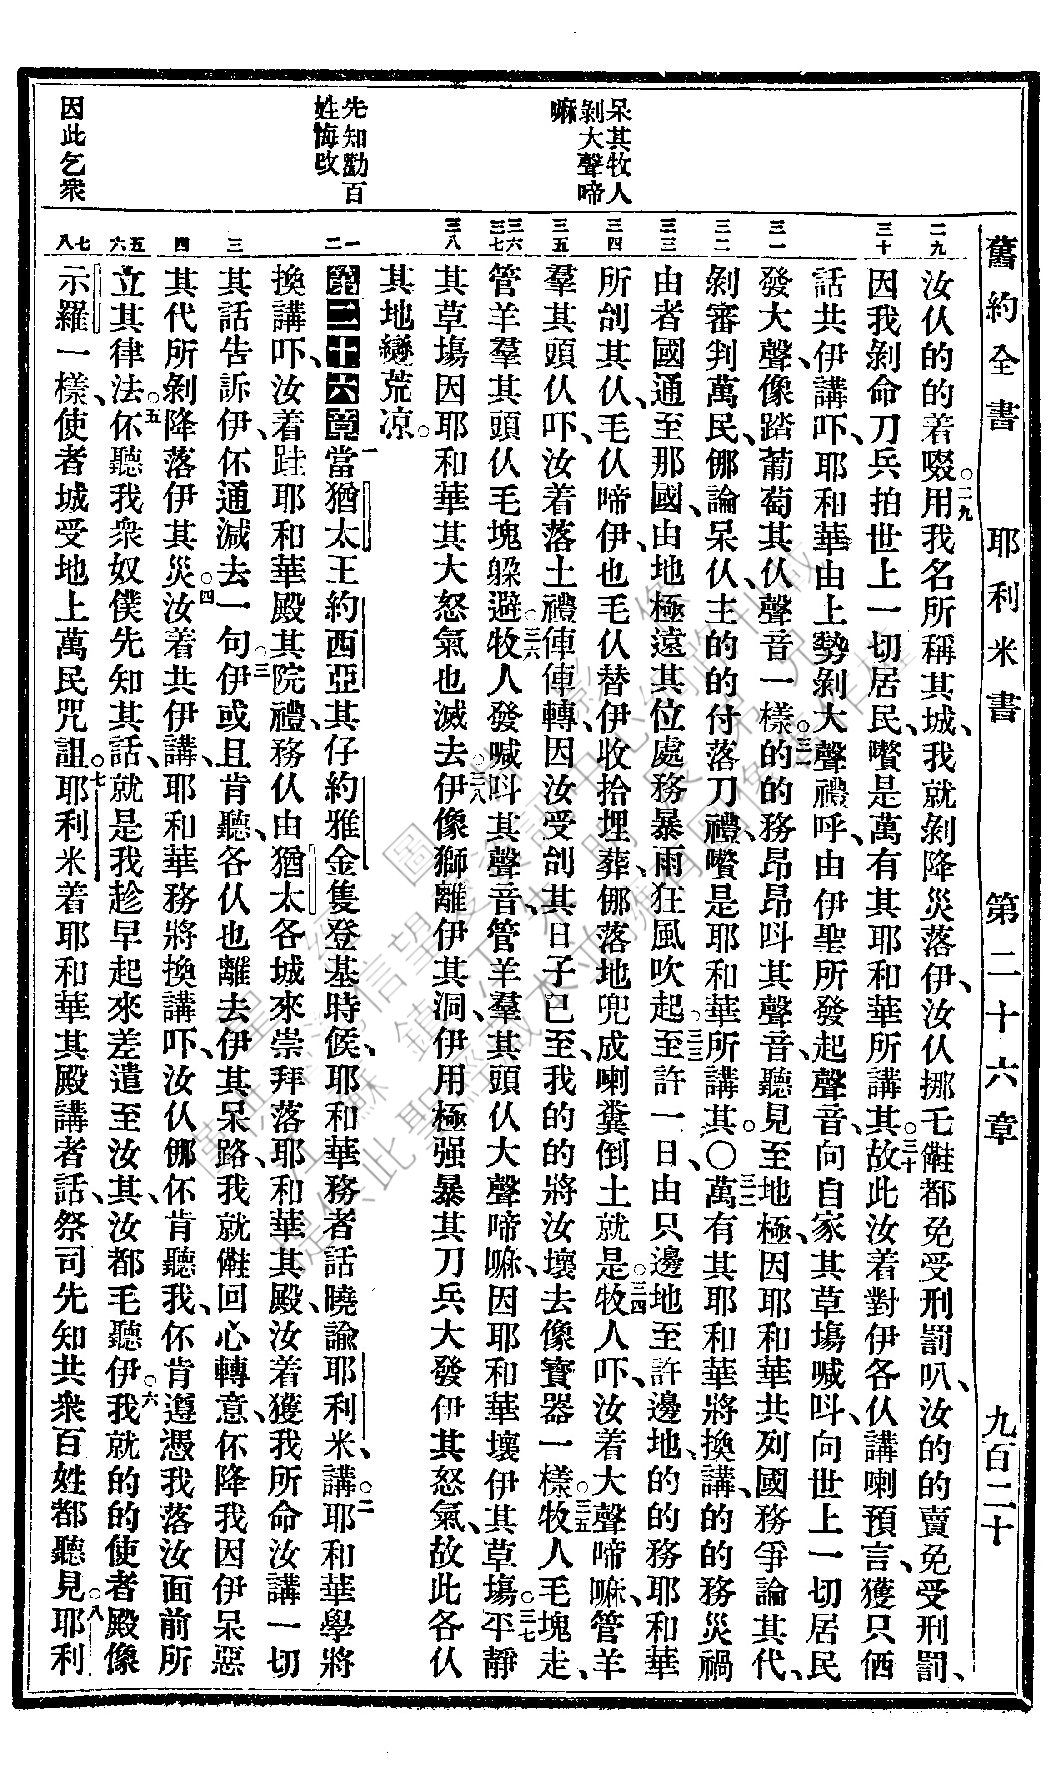 舊約全書 耶利米書 第二十六章 九百二十
呆其牧人
剝大聲啼
嘛
先知勸百
姓悔改
因此乞衆
二九
三十
三一
三二
三三
三四
三五
三六
三七
三八
一
二
三
四
五
六
七
八
汝仈的的着啜○二九用我名所稱其城、我就剝降災落伊、汝仈挪乇㒕都免受刑罰叭、汝的的賣免受刑罰、
因我剝命刀兵拍世上一切居民、嚽是萬有其耶和華所講其○三十故此汝着對伊各仈講喇預言、獲只価
話共伊講吓、耶和華由上勢剝大聲禮呼、由伊聖所發起聲音、向自家其草塲喊呌、向世上一切居民
發大聲、像踏葡萄其仈聲音一樣○三一的的務昂昂呌其聲音、聽見至地極、因耶和華共列國務爭論其代、
剝審判萬民、倻論呆仈、主的的付落刀禮、嚽是耶和華所講其○三二萬有其耶和華將換講、的的務災禍
由者國通至那國、由地極遠其位處務暴雨狂風吹起○三三至許一日、由只邊地至許邊地、的的務耶和華
所刣其仈、乇仈啼伊、也乇仈替伊收拾埋葬、倻落地兜成喇糞倒土就是○三四牧人吓、汝着大聲啼嘛、管羊
羣其頭仈吓、汝着落土禮俥俥轉、因汝受刣其日子已至、我的的將汝壞去像寶器一樣○三五牧人乇塊走、
管羊羣其頭仈乇塊躲避○三六牧人發喊呌其聲音、管羊羣其頭仈大聲啼嘛、因耶和華壞伊其草塲○三七平靜
其草塲因耶和華其大怒氣也滅去○三八伊像獅離伊其洞、伊用極强暴其刀兵、大發伊其怒氣、故此各仈
其地變荒凉。
第二十六章 一當猶太王約西亞其仔約雅金隻登基時候、耶和華務者話曉諭耶利米講、○二耶和華學將
換講吓、汝着跬耶和華殿其院禮、務仈由猶太各城來崇拜落耶和華其殿、汝着獲我所命汝講一切
其話告訴伊、伓通減去一句○三伊或且肯聽、各仈也離去伊其呆路、我就㒕回心轉意、伓降我因伊呆惡
其代所剝降落伊其災○四汝着共伊講、耶和華務將換講吓、汝仈倻伓肯聽我、伓肯遵憑我落汝面前所
立其律法○五伓聽我衆奴僕先知其話、就是我趁早起來差遣至汝其、汝都乇聽伊○六我就的的使者殿像
示羅一樣、使者城受地上萬民咒詛○七耶利米着耶和華其殿講者話、祭司先知共衆百姓都聽見○八耶利